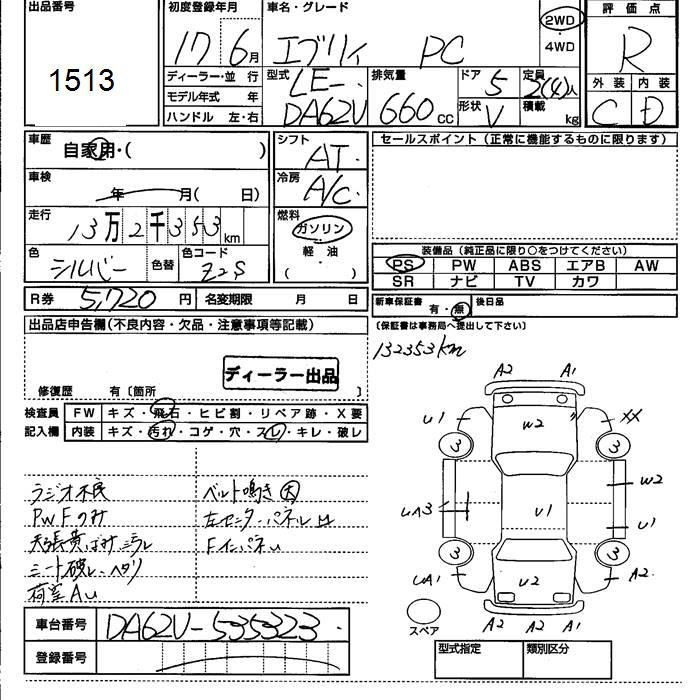 出品番号
初度登録年月
車名・グレード
2WD
・
4WD
評価点
1513
17 6月
エブリィ PC
R
ディーラー・並 行
モデル年式 年
ハンドル 左・右
型式
LE-
DA62V
排気量
660 cc
ドア 5
形状 V
定員 2(4)人
積載 kg
外装 内装
C D
車歴
自家用・( )
シフト
AT
セールスポイント (正常に機能するものに限ります)
車検
年 月( 日)
冷房
A/C
走行
13万2千353km
燃料
ガソリン
・
軽油
( )
色
シルバー
色替
色コード
Z2S
装備品 (純正品に限り○をつけてください)
PS PW ABS エアB AW
SR ナビ TV カワ
R券 5,720 円 名変期限 月 日
新車保証書 有・無 後日品
(保証書は事務局へ提出して下さい)
出品店申告欄(不良内容・欠品・注意事項等記載)
132353km
ディーラー出品
修復歴 有〔箇所 〕
検査員 FW キズ・飛石・ヒビ割・リペア跡・X要
記入欄 内装 キズ・汚れ・コゲ・穴・スレ・キレ・破レ
ラジオ不良
PWFのみ
天張黄ばみ
シート破レ・ヘタリ
荷室AU
ベルト鳴き大
左センターパネル
FインパネU
A2 A1
U1 W2 XX
3 3
W2
UA3 U1 U1
3 3
UA1 U2 A2
A2 A2 A1
スペア
車台番号 DA62V-535323
登録番号
型式指定 類別区分